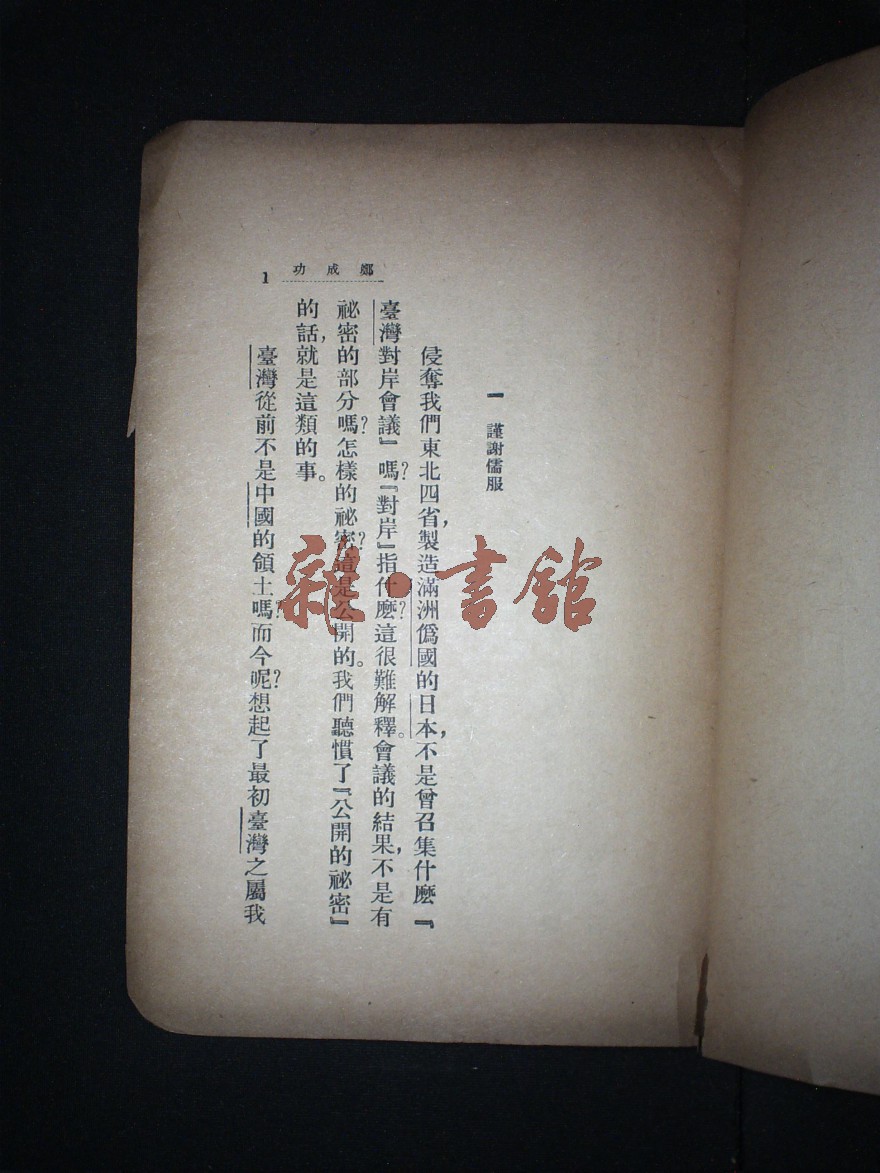 鄭成功
1
一 謹謝儒服
侵奪我們東北四省,製造滿洲僞國的日本,不是曾召集什麽『
臺灣對岸會議』嗎?『對岸』指什麽?這很難解釋。會議的結果,不是有
祕密的部分嗎?怎樣的祕密?這是公開的。我們聽慣了『公開的祕密』
的話,就是這類的事。
臺灣從前不是中國的領土嗎?而今呢?想起了最初臺灣之屬我
雜·書館